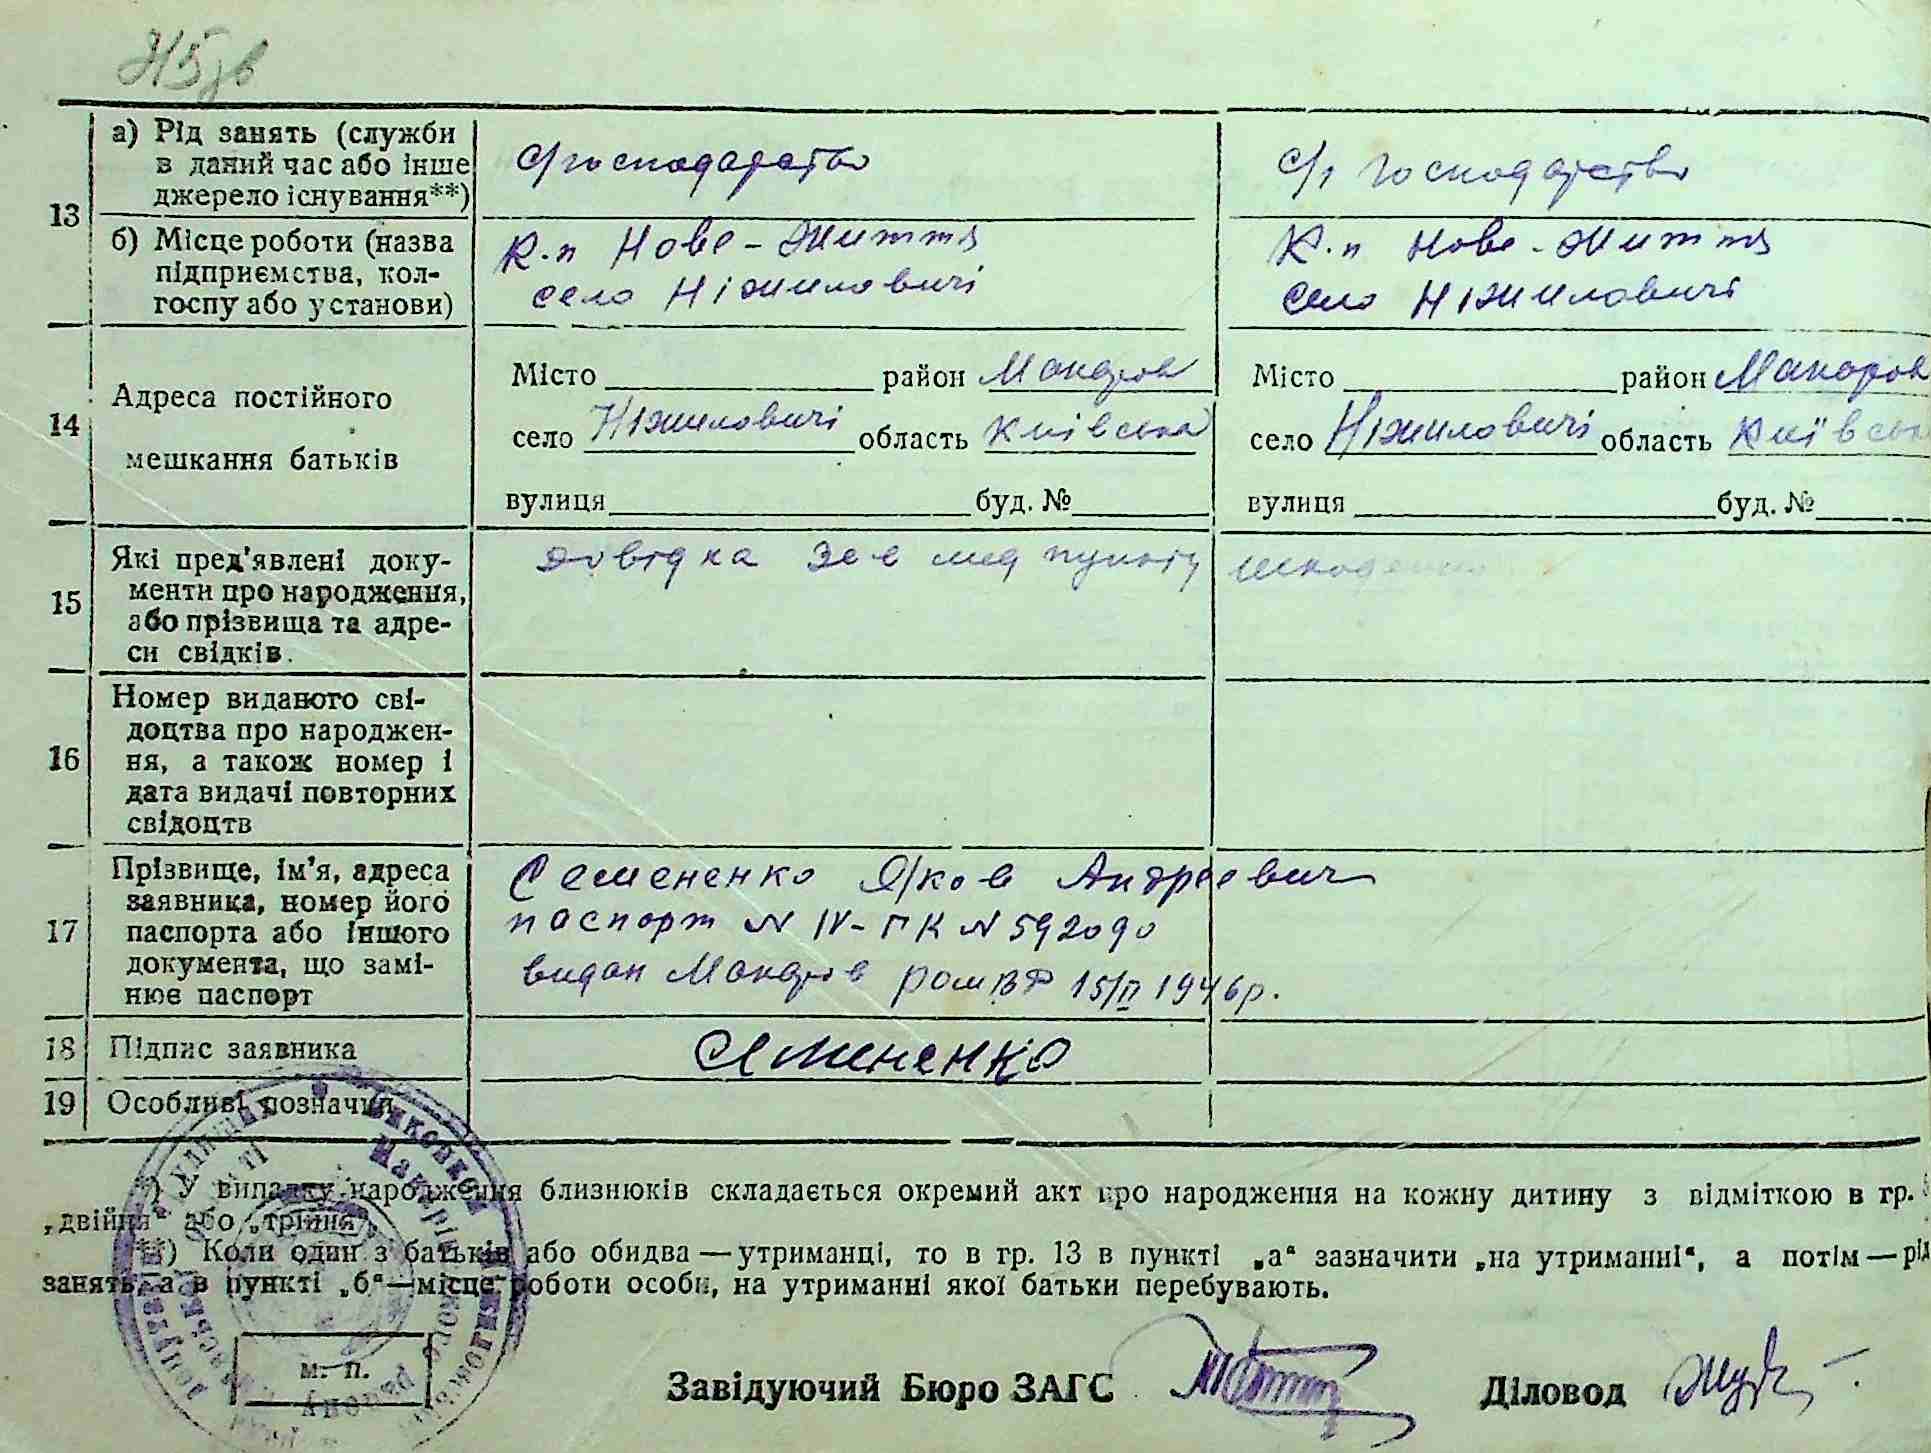 13 а) Рід занять (служби в даний час або інше джерело існування**)
с/господарство
с/г господарство
б) Місце роботи (назва підприємства, колгоспу або установи)
К.п Нове-Життя
село Ніжиловичі
К.п Нове-Життя
село Ніжиловичі
14 Адреса постійного мешкання батьків
Місто район Макарів
село Ніжиловичі область Київська
вулиця буд. №
Місто район Макаров
село Ніжиловичі область Київсь
вулиця буд. №
15 Які пред'явлені документи про народження, або прізвища та адреси свідків.
довідка мед пункту
16 Номер виданого свідоцтва про народження, а також номер і дата видачі повторних свідоцтв
17 Прізвище, ім'я, адреса заявника, номер його паспорта або іншого документа, що замінює паспорт
Семененко Яков Андреевич
паспорт N IV-ПК N 592090
видан Макарів 15/II 1946р.
18 Підпис заявника
Семененко
19 Особливі позначки
*) У випадку народження близнюків складається окремий акт про народження на кожну дитину з відміткою в гр.
„двійня“ або „трійня“.
**) Коли один з батьків або обидва — утриманці, то в гр. 13 в пункті „а“ зазначити „на утриманні“, а потім — рід
занять, а в пункті „б“ — місце роботи особи, на утриманні якої батьки перебувають.
м. п.
Завідуючий Бюро ЗАГС
Діловод